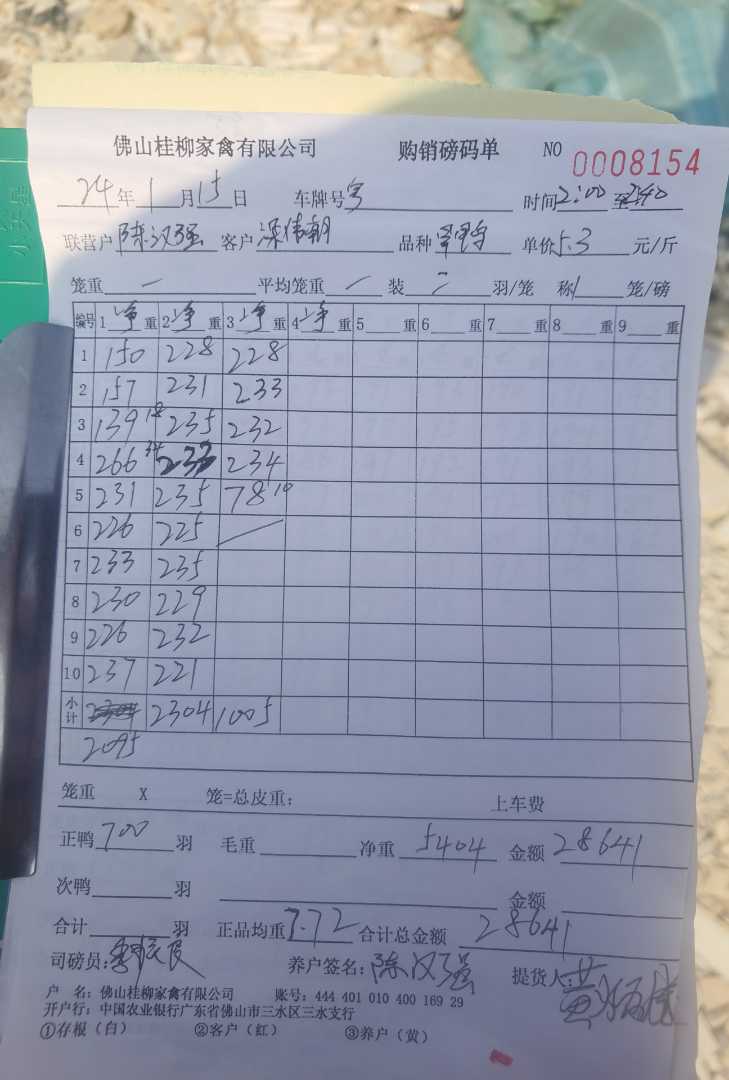 佛山桂柳家禽有限公司 购销磅码单 NO 0008154
24年1月15日 车牌号 时间2:00至2:40
联营户陈汉强 客户深伟朝 品种 单价5.3元/斤
笼重一 平均笼重 装 羽/笼 称1笼/磅
编号 1净重 2净重 3净重 4净重 5重 6重 7重 8重 9重
1 150 228 228
2 157 231 233
3 139 18 235 232
4 266 34 233 234
5 231 235 78 10
6 226 225
7 233 235
8 230 229
9 226 232
10 237 221
小计 2304 1005
2095
笼重 X 笼=总皮重： 上车费
正鸭700羽 毛重 净重5404 金额28641
次鸭 羽 金额
合计 羽 正品均重7.72 合计总金额28641
司磅员： 养户签名：陈汉强 提货人：黄
户 名：佛山桂柳家禽有限公司 账号：444 401 010 400 169 29
开户行：中国农业银行广东省佛山市三水区三水支行
①存根（白） ②客户（红） ③养户（黄）